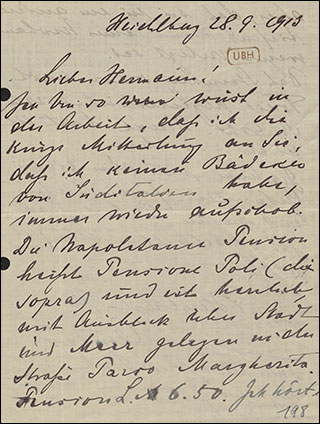 Heidelberg 28.9.1913
UBH
Lieber Hermann!
Ich bin so wüst in
der Arbeit, daß ich die
kurze Mitteilung an Sie,
daß ich keinen Bädecker
von Süditalien habe,
immer wieder aufschob.
Die Napoletaner Pension
heißt Pensione Poli (di
sopra) und ist herrlich
mit Ausblick über Stadt
und Meer gelegen in der
Straße Parco Margherita.
Pension L. 6.50. Ich
198